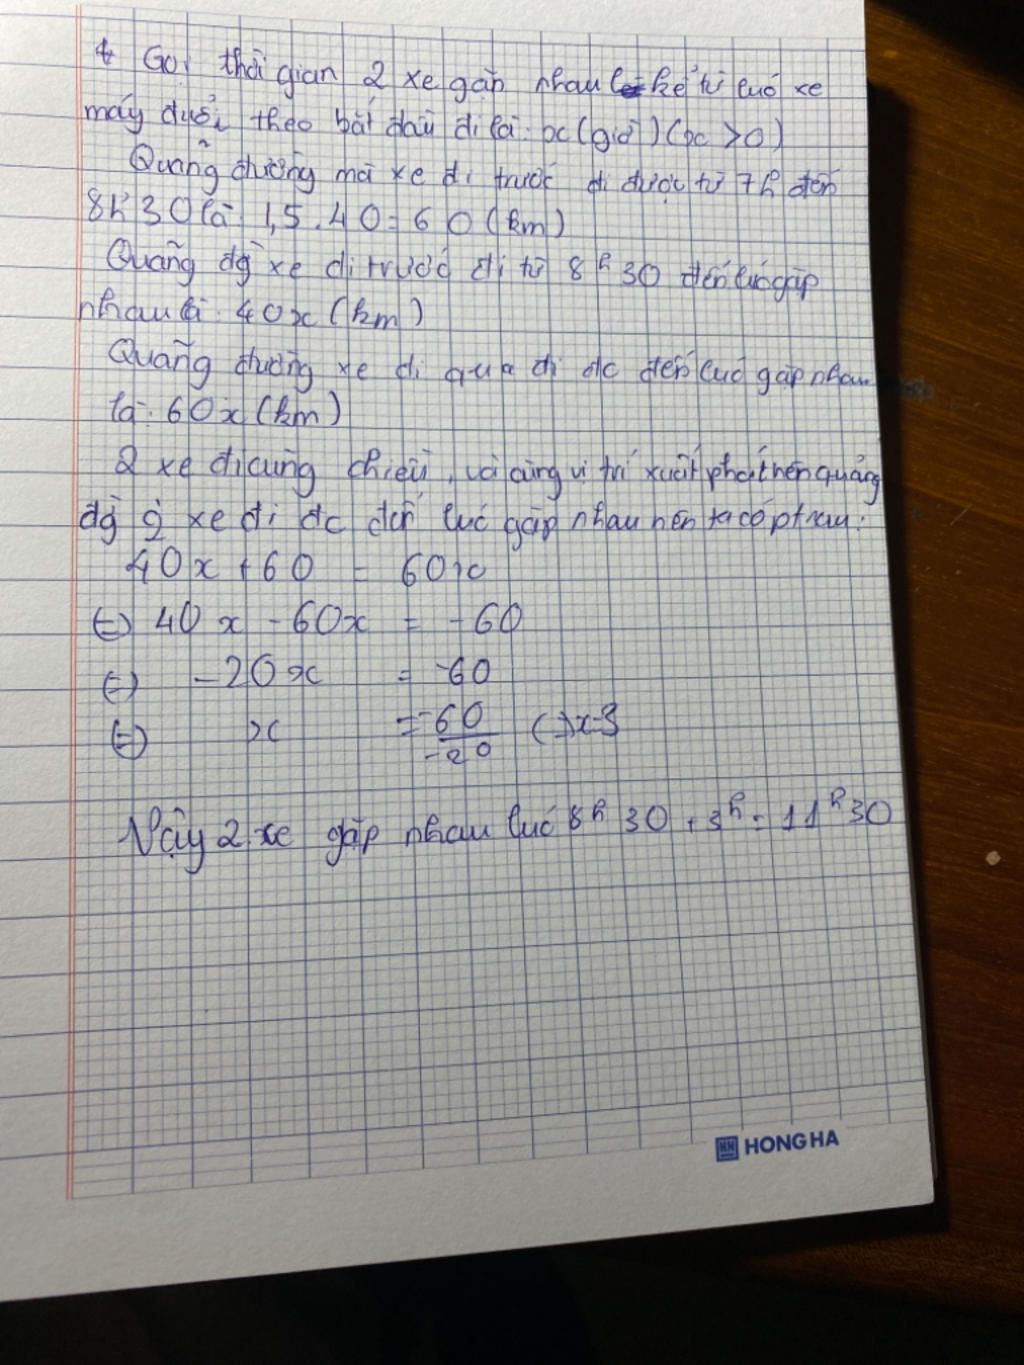 4 Gọi thời gian 2 xe gặp nhau kể từ lúc xe
máy đuổi theo bắt đầu đi là: x (giờ) (x > 0)
Quãng đường mà xe đi trước đi được từ 7h đến
8h30 là: 1,5 . 40 = 60 (km)
Quãng đg xe đi trước đi từ 8h30 đến lúc gặp
nhau là: 40x (km)
Quãng đường xe đi đi đc đến lúc gặp nhau
là: 60x (km)
2 xe đi cùng chiều, và cùng vị trí xuất phát nên quãng
đg 2 xe đi đc đến lúc gặp nhau nên ta có pt sau:
40x + 60 = 60x
(=) 40x - 60x = -60
(=) -20x = -60
(=) x = -60/-20 (=) x=3
Vậy 2 xe gặp nhau lúc 8h30 + 3h = 11h30
HONG HA